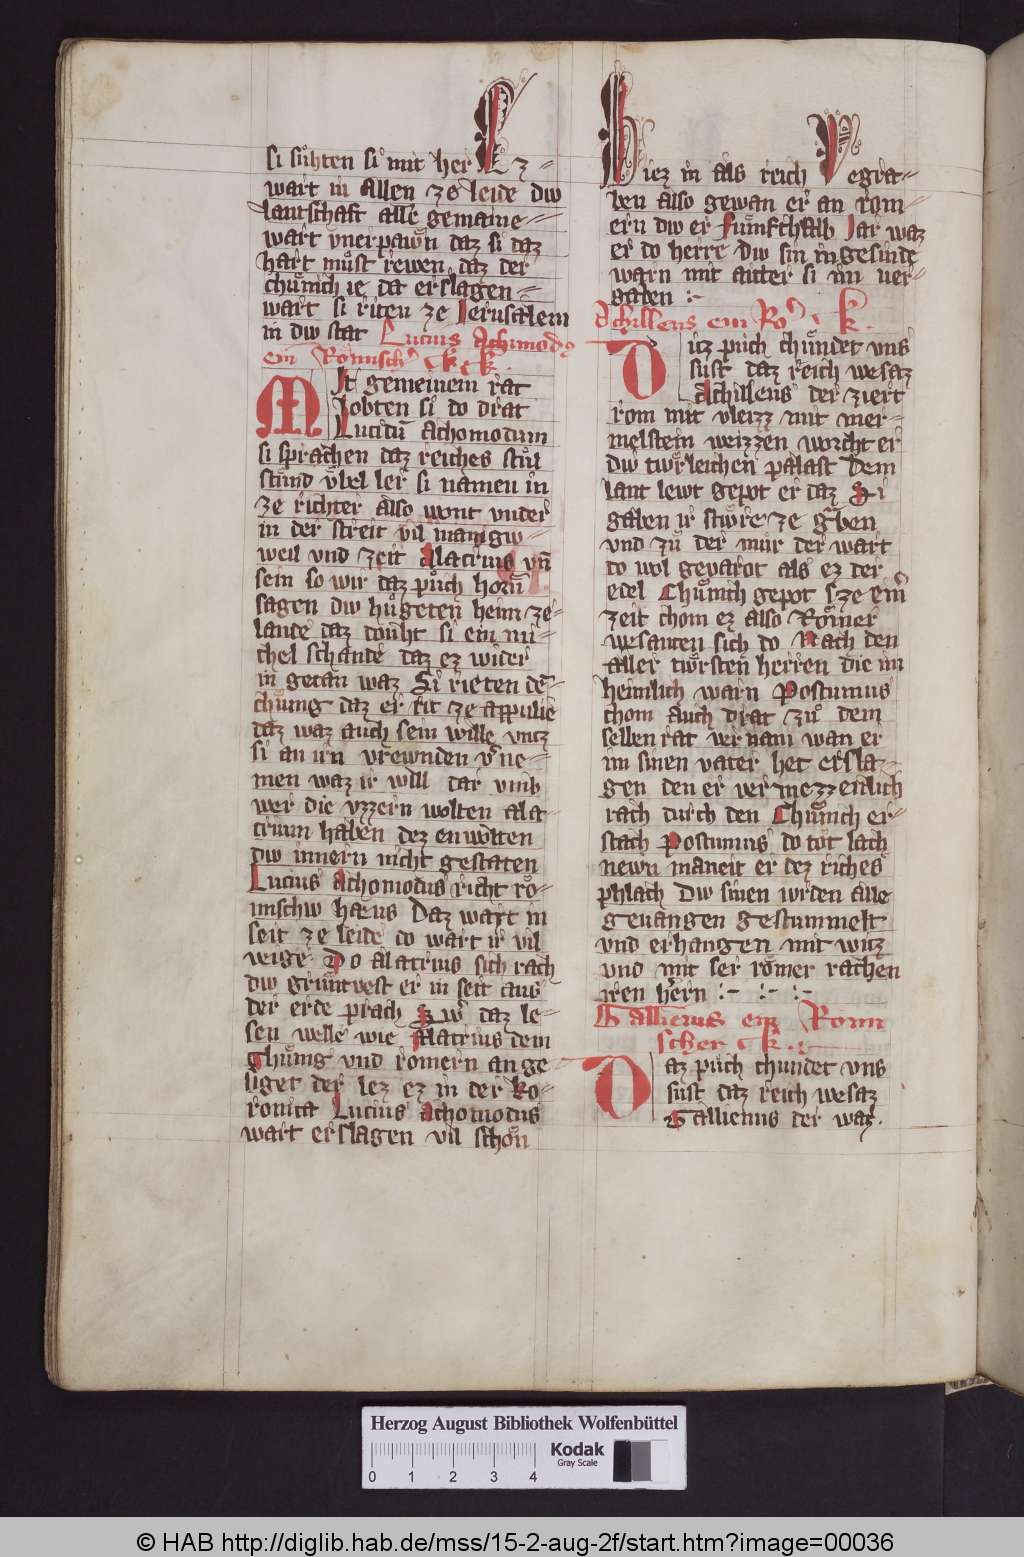 si suͦhten si mit her Ez
wart in Allen ze leide diu
lantschaft alle gemaine
wart vnerpawͦn daz si daz
hart muͦst rewen daz der
chuͦnich ie da erslagen
wart si riten ze Jerusalem
in diu stat Lucius Achimod
ein Roͤmisch' k k.
MIt gemeinem rat
lobten si do drat
Luciduͦ Achomodum
si sprachen daz reiches stuͦl
stuͦnd vͤbel ler si namen in
ze richter Also wont vnder
in der streit vil manigiu
weil vnd zeit Alatrius vn̄
sein so wir daz puͦch horn̄
sagen diu huͦgeten heim ze
lande daz douht si ein mi
chel schande daz ez wider
in getan waz Si rieten de
chuͦnig daz er rit ze appulie
daz waz auch sein wille vntz
si an irn vrewnden v'ne
men waz ir will dar vmb
wer die vzzern wolten Ala
trium haben dez enwolten
diu innern nicht gestaten
Lucius Achomodus richt roͤ
mschiu haus Daz wart in
seit ze leide do wart ir vil
veige Do Alatrius sich rach
diu gruntvest er in seit aus
der erde prach Swˢ daz le
sen welle wie Alatrius dem
Chuͦnig vnd romern an ge
siget der lez ez in der ko
ronica Lucius Achomodus
wart erslagen vil schoͤn
hiez in als reich Vegra
ben also gewan er an rom
ern diu er Fuͤmfthalb Jar waz
er do herre Diu sin ingesinde
warn mit aitter si im ver
gaben :-
Achillens ein Ro' k.
Diz puͦch chuͦndet vns
sust daz reich wesaz
Achillens der ziert
rom mit vleizz mit mer
melstein weizzen worcht er
diu twͦrleichen palast Dem
lant lewt gepot er daz Si
gaben ir stwͦre ze geben
vnd zuͦ der mur der wart
do wol gevarot als ez der
edel Chuͦnich gepot ze einˢ
zeit chom ez also Roͤmer
wesanten sich do Nach den
aller twͦrsten herren die im
heimlich warn Postumus
chom auch drat zuͦ dem
sellen rat vernam wan er
im sinen vater het ersla
gen den er vermezzenlich
rach durch den Chuͦnich er
stach Postumus do tot lach
newn maneit er dez riches
phlach Diu sinen wrden alle
gevangen gestummelt
vnd erhangen mit witz
vnd mit ser roͤmer rachen
iren hern :- :- :-
Gallienus ein Romi
scher k.
Daz puͦch chundet vns
sust daz reich wesaz
Gallienus der waz.
Herzog August Bibliothek Wolfenbüttel
Kodak
Gray Scale
0 1 2 3 4
© HAB http://diglib.hab.de/mss/15-2-aug-2f/start.htm?image=00036